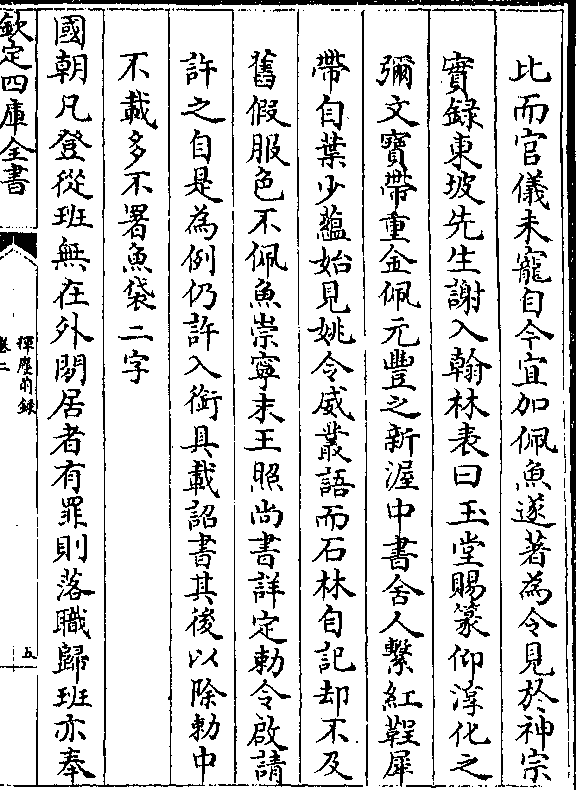 比而官儀未寵自今宜加佩魚遂著為令見於神宗
實録東坡先生謝入翰林表曰玉堂賜篆仰淳化之
彌文寶帶重金佩元豐之新渥中書舍人繫紅鞓犀
帶自葉少藴始見姚令威叢語而石林自記却不及
舊假服色不佩魚崇寧末王照尚書詳定勅令啟請
許之自是為例仍許入銜具載詔書其後以除勅中
不載多不署魚袋二字
國朝凡登從班無在外閒居者有罪則落職歸班亦奉
欽定四庫全書
揮麈前録
卷二
五